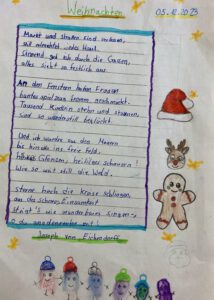 Weihnachten
05.12.2023
Markt und Straßen sind verlassen,
still erleuchtet jedes Haus
Sinnend geh ich durch die Gassen,
alles sieht so festlich aus.
An den Fenstern haben Frauen
buntes spielzeug fromm geschmückt.
Tausend Kindlein stehn und schauen,
sind so wundervoll beglückt.
Und ich wandre aus den Mauern
bis hinaus ins freie Feld.
Glänzen, heiliges schauern!
Wie so weit still die Welt.
Sterne hoch die Kreise schlingen
aus des Schnees Einsamkeit
Steigt's wie wunderbares Singen-
o du gnadenreiche Zeit!
Joseph von Eichendorff